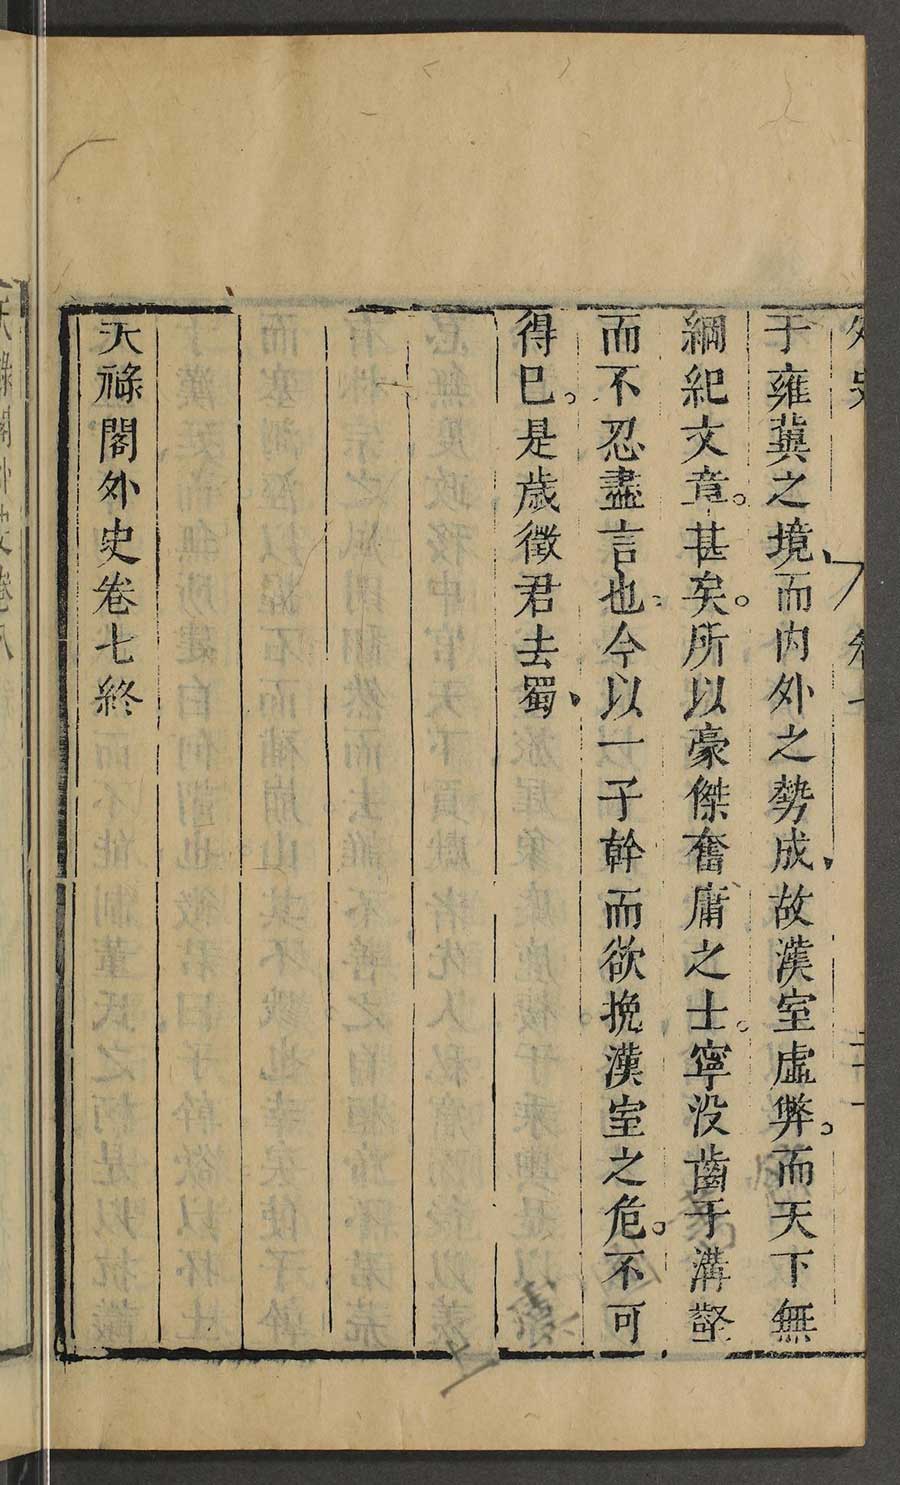 于雍冀之境、而内外之勢成、故漢室虛弊。而天下無
綱紀文章。甚矣。所以豪傑奮庸之士。寧没齒于溝壑
而不忍盡言也。今以一子幹而欲挽漢室之危。不可
得巳。是歳徵君去蜀、
天祿閣外史卷七終